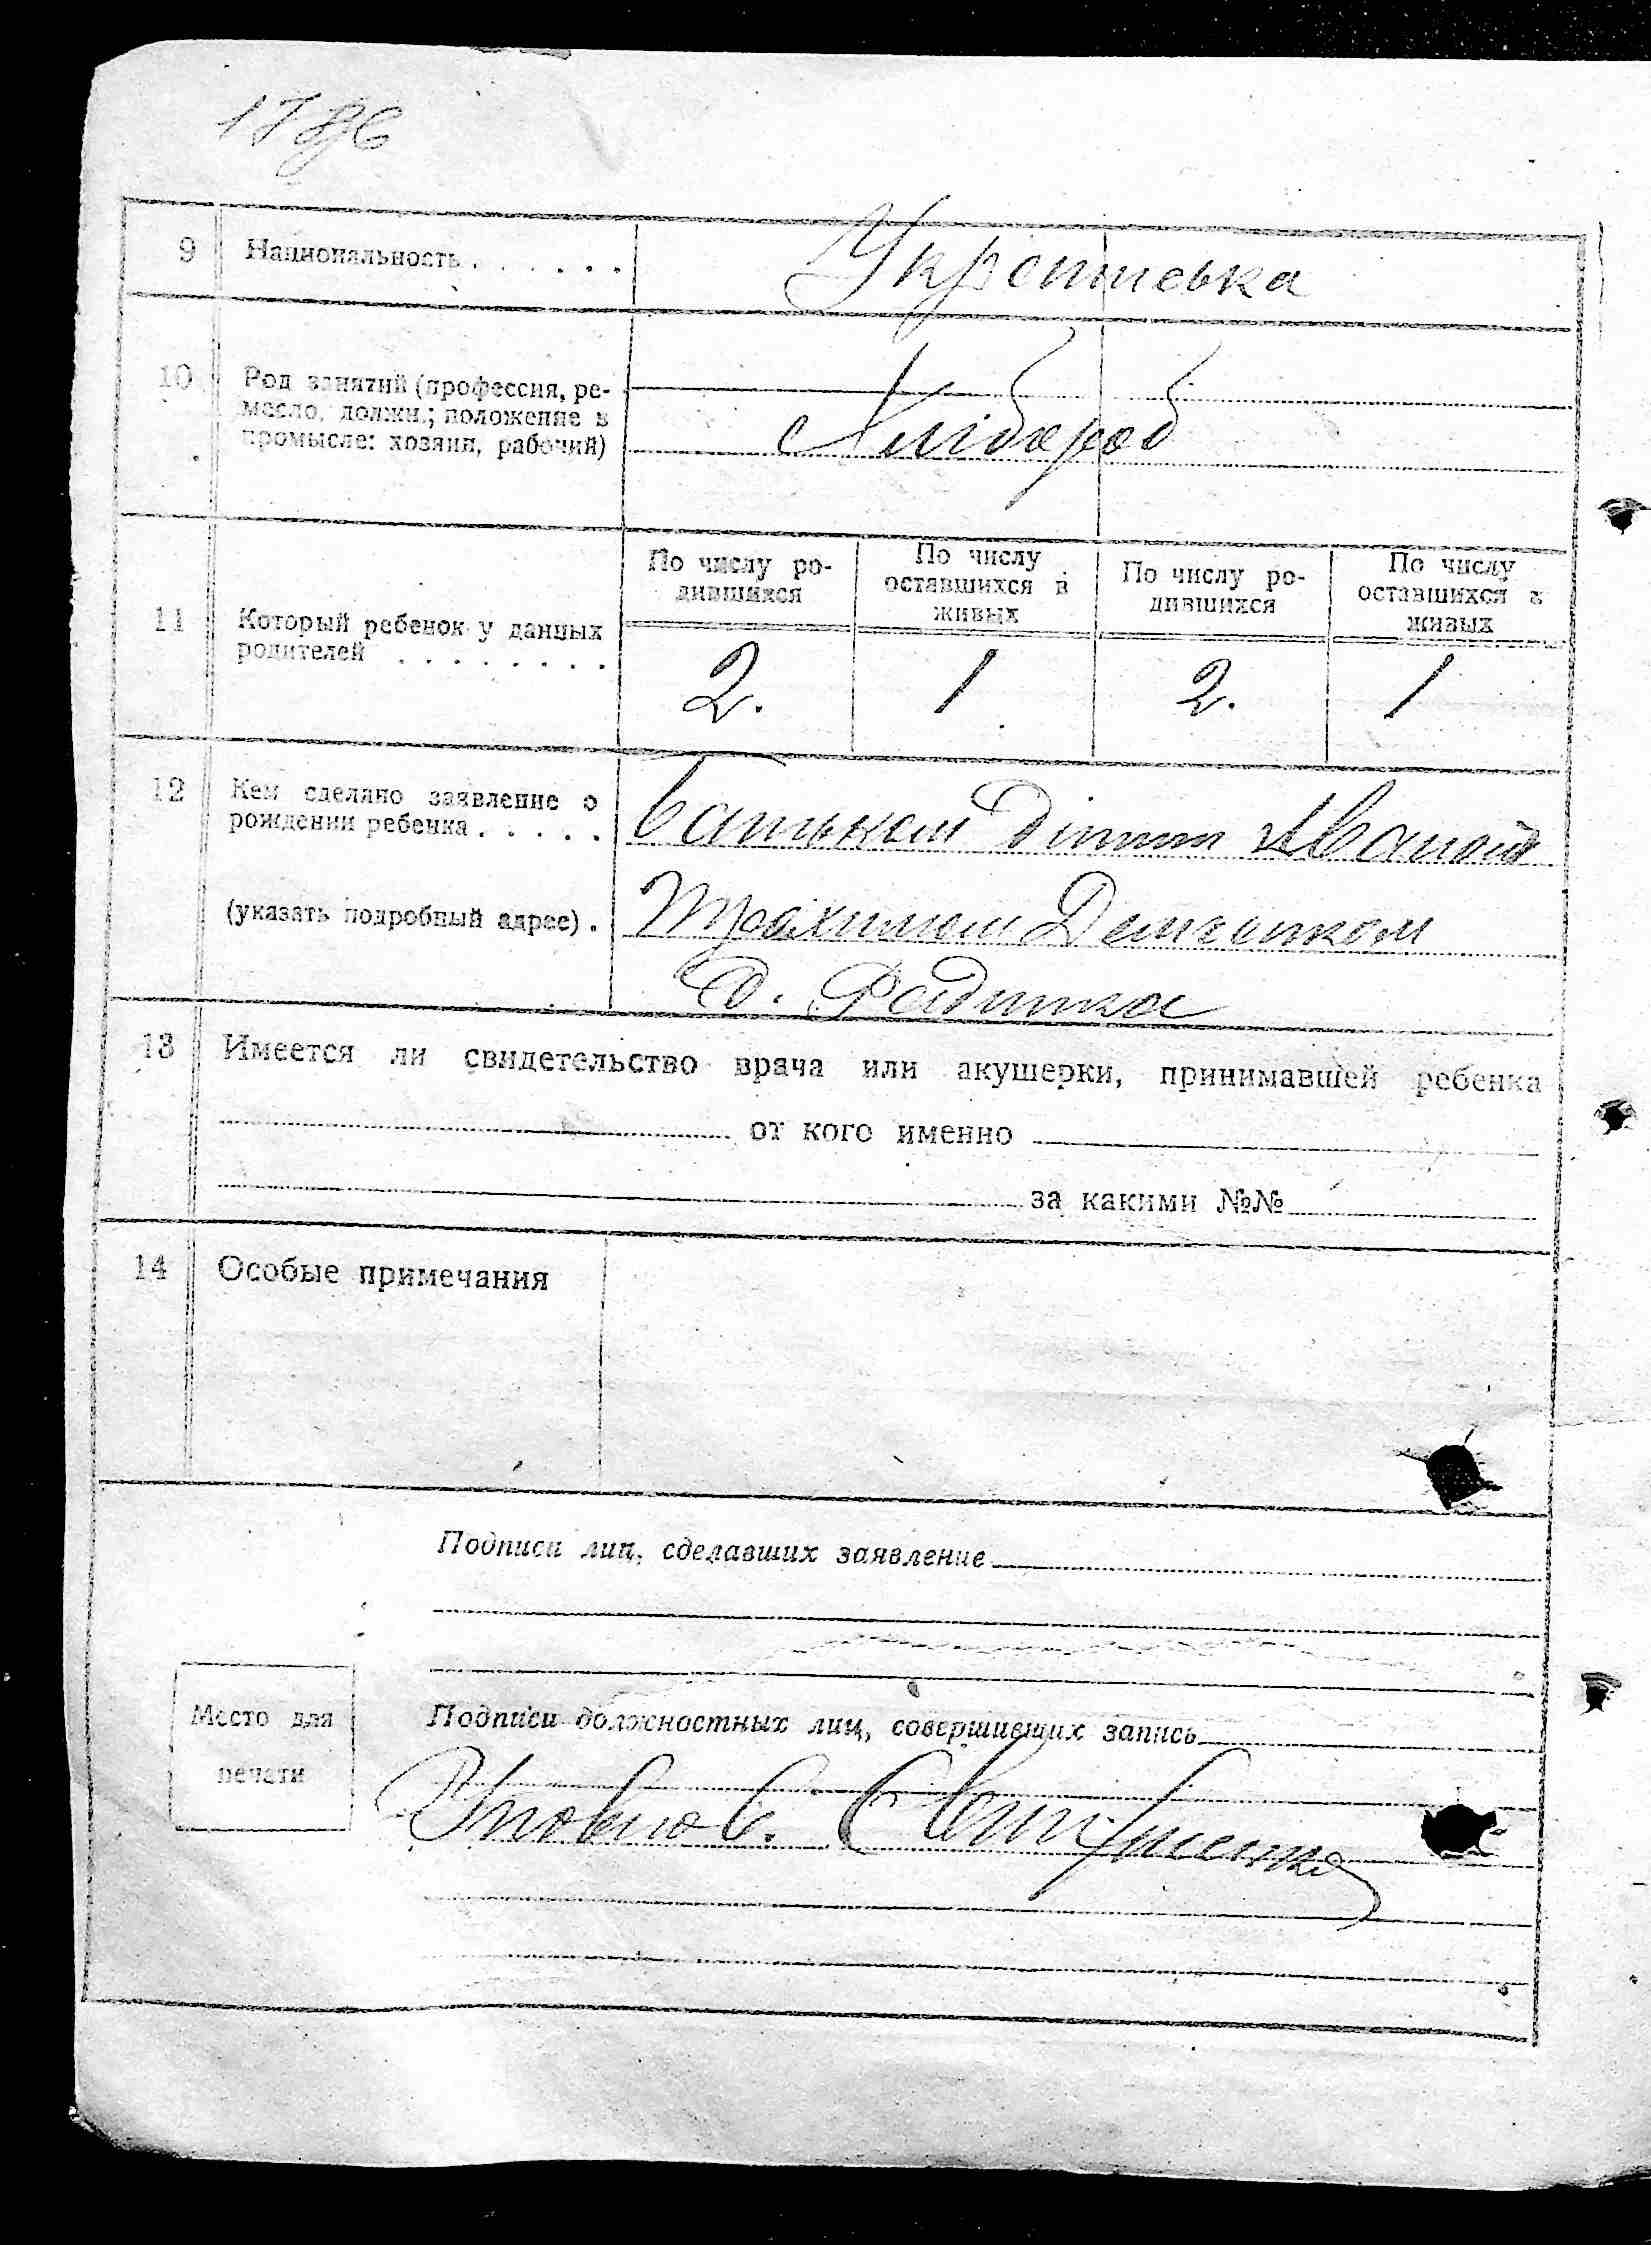 9 Национальность . . . . . .
Українська
10 Род занятий (профессия, ре-
месло, должн.; положение в
промысле: хозяин, рабочий)
Хлібороб
По числу ро-
дившихся
По числу
оставшихся в
живых
По числу ро-
дившихся
По числу
оставшихся в
живых
11 Который ребенок у данных
родителей . . . . . . . .
2. 1 2. 1
12 Кем сделано заявление о
рождении ребенка . . . . .
батьком
(указать подробный адрес) .
Трохимом Демченком
13 Имеется ли свидетельство врача или акушерки, принимавшей ребенка
от кого именно
за какими №№
14 Особые примечания
Подписи лиц, сделавших заявление
Место для
печати
Подписи должностных лиц, совершивших запись